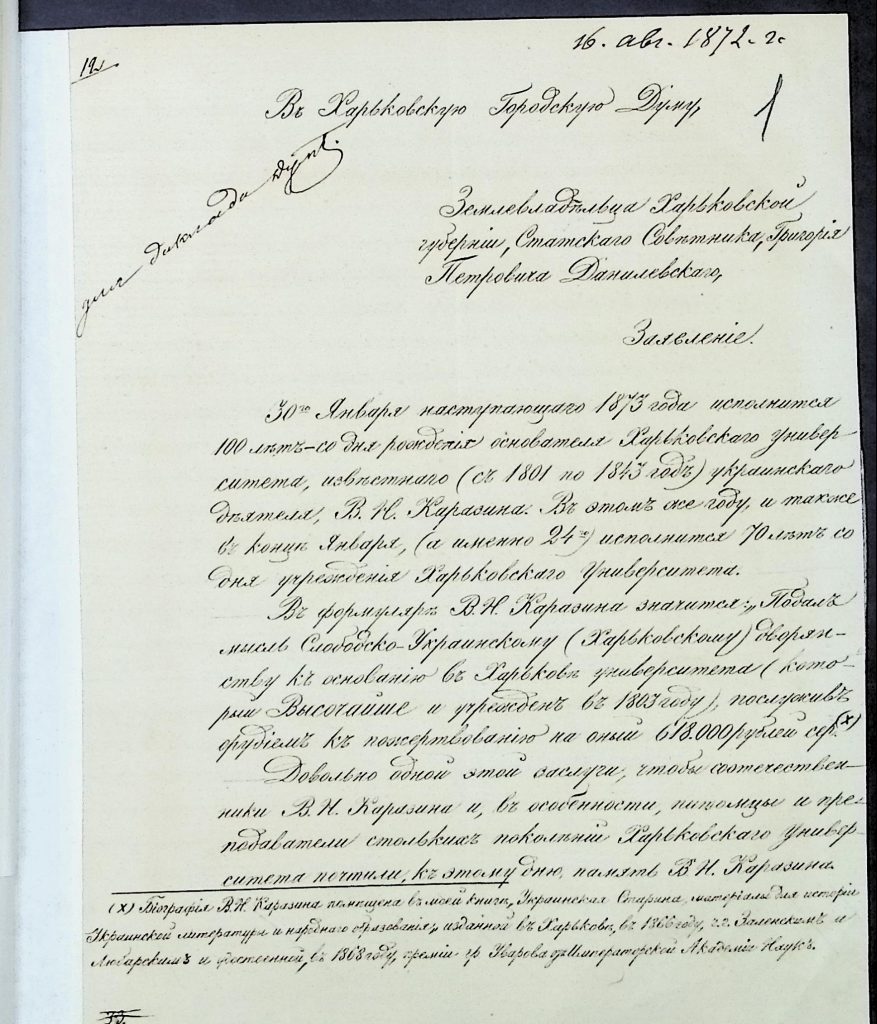 16. авг. 1872. г.
12
Въ Харьковскую Городскую Думу,
1
для доклада Думѣ.
Землевладѣльца Харьковской
губерніи, Статскаго Совѣтника, Григорія
Петровича Данилевскаго,
Заявленіе.
30го Января наступающаго 1873 года исполнится
100 лѣтъ со дня рожденія основателя Харьковскаго Универ-
ситета, извѣстнаго (съ 1801 по 1843 годъ) украинскаго
дѣятеля, В. Н. Каразина. Въ этомъ же году, и также
въ концѣ Января, (а именно 24го) исполнится 70 лѣтъ со
дня учрежденія Харьковскаго Университета.
Въ формулярѣ В. Н. Каразина значится: „Подалъ
мысль Слободско-Украинскому (Харьковскому) дворян-
ству къ основанію въ Харьковѣ университета (кото-
рый Высочайше и учрежденъ въ 1803 году), послуживъ
орудіемъ къ пожертвованію на оный 618.000 рублей сер. (х)
Довольно одной этой заслуги, чтобы соотечествен-
ники В. Н. Каразина и, въ особенности, питомцы и пре-
подаватели столькихъ поколѣній Харьковскаго Универ-
ситета почтили, къ этому дню, память В. Н. Каразина.
(х) Біографія В. Н. Каразина помѣщена въ моей книгѣ, Украинская Старина, матеріалы для исторіи
Украинской литературы и народнаго образованія, изданной въ Харьковѣ, въ 1866 году, г.г. Заленскимъ и
Любарскимъ и удостоенной, въ 1868 году, преміи гр. Уварова Императорской Академіи Наукъ.